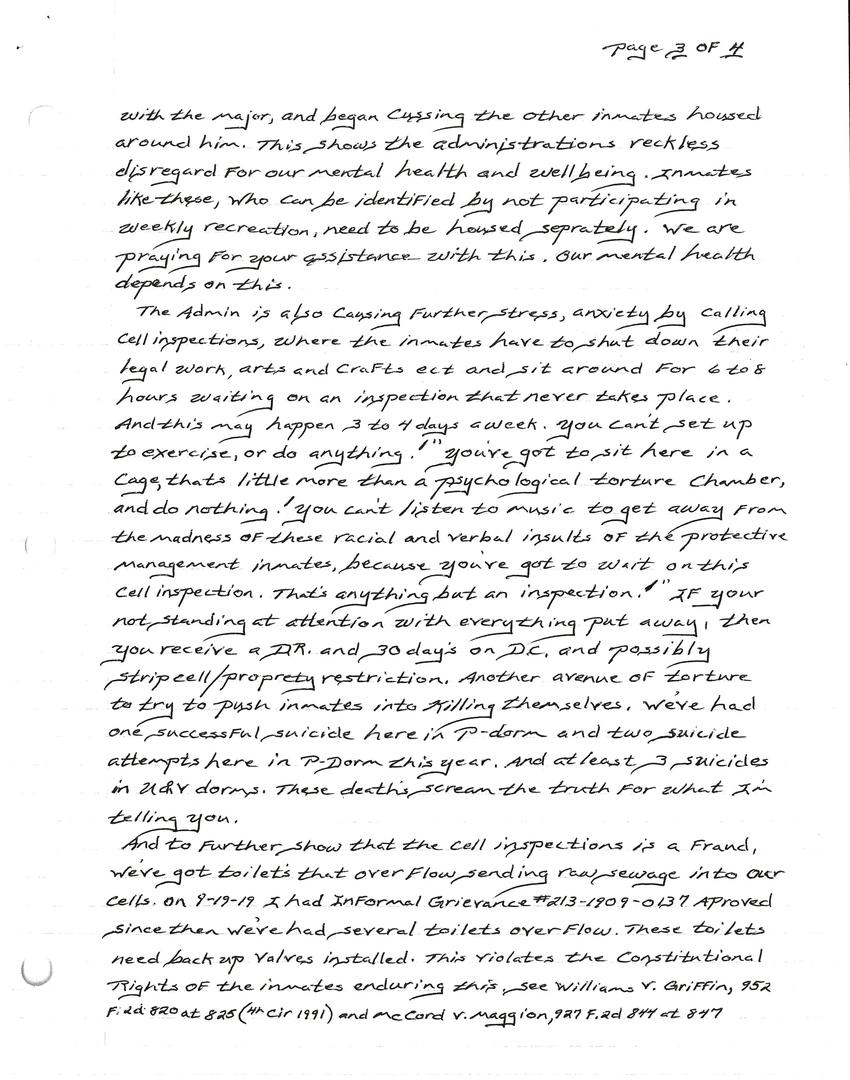 page 3 OF 4
with the major, and began Cussing the other inmates housed
around him. This shows the administrations reckless
disregard For our mental health and well being. Inmates
like these, who can be identified by not participating in
weekly recreation, need to be housed seprately. We are
praying For your assistance with this. Our mental health
depends on this.
The Admin is also Causing Further stress, anxiety by Calling
Cell inspections, where the inmates have to shut down their
legal work, arts and Crafts ect and sit around For 6 to 8
hours waiting on an inspection that never takes place.
And this may happen 3 to 4 days a week. You can't set up
to exercise, or do anything.!" You've got to sit here in a
Cage, thats little more than a psychological torture Chamber,
and do nothing.! You can't listen to music to get away From
the madness OF these racial and verbal insults OF the protective
management inmates, because you've got to wait on this
Cell inspection. That's anything but an inspection.!" IF your
not standing at attention with everything put away, then
you receive a D.R. and 30 day's on D.C. and possibly
strip cell/proprety restriction. Another avenue OF torture
to try to push inmates into Killing themselves. We've had
one successful suicide here in P-dorm and two suicide
attempts here in P-Dorm this year. And at least 3 suicides
in U&V dorms. These death's scream the truth For what I'm
telling you.
And to Further show that the cell inspections is a Fraud,
We've got toilet's that over Flow sending raw sewage into our
Cells. On 9-19-19 I had InFormal Grievance #213-1909-0137 AProved
since then we've had several toilets over Flow. These toilets
need back up Valves installed. This Violates the Constitutional
Rights OF the inmates enduring this, see Williams V. Griffin, 952
F.2d 820 at 825 (4th Cir 1991) and McCord V. Maggion, 927 F.2d 844 at 847